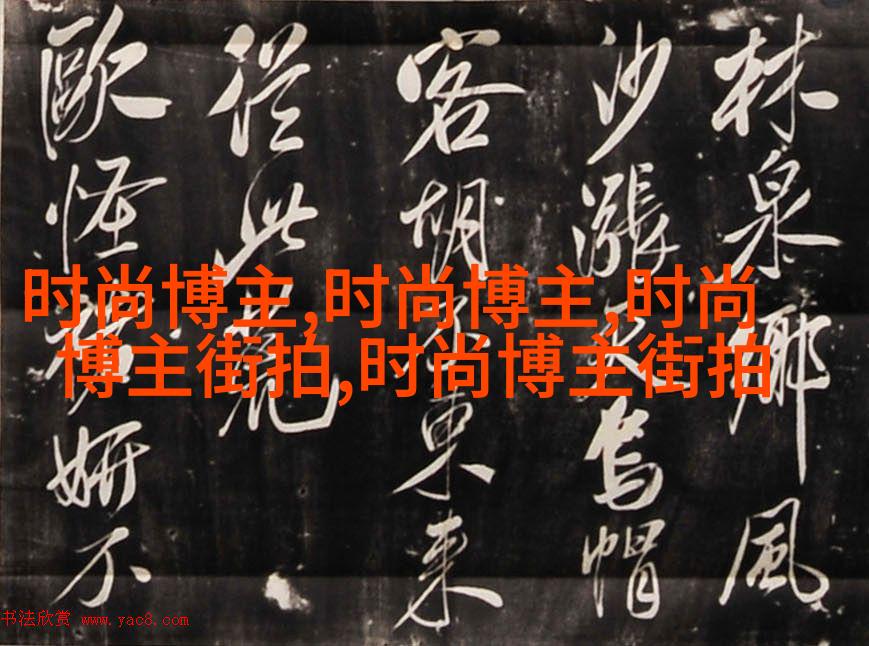 林泉風
沙漲烏帽
客胡東來
從此
歐怪妍不
时尚博主,时尚博主,时尚
博主街拍,时尚博主街拍
书法欣赏 www.yac8.com